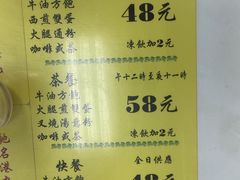 牛油方飽
西煎雙蛋
火腿通粉
咖啡或茶
48元
凍飲加2元
茶餐
午十二時至夜十一時
牛油方飽
火腿煎雙蛋
叉燒湯意粉
咖啡或茶
58元
凍飲加2元
快餐
全日供應
牛油方飽
48元